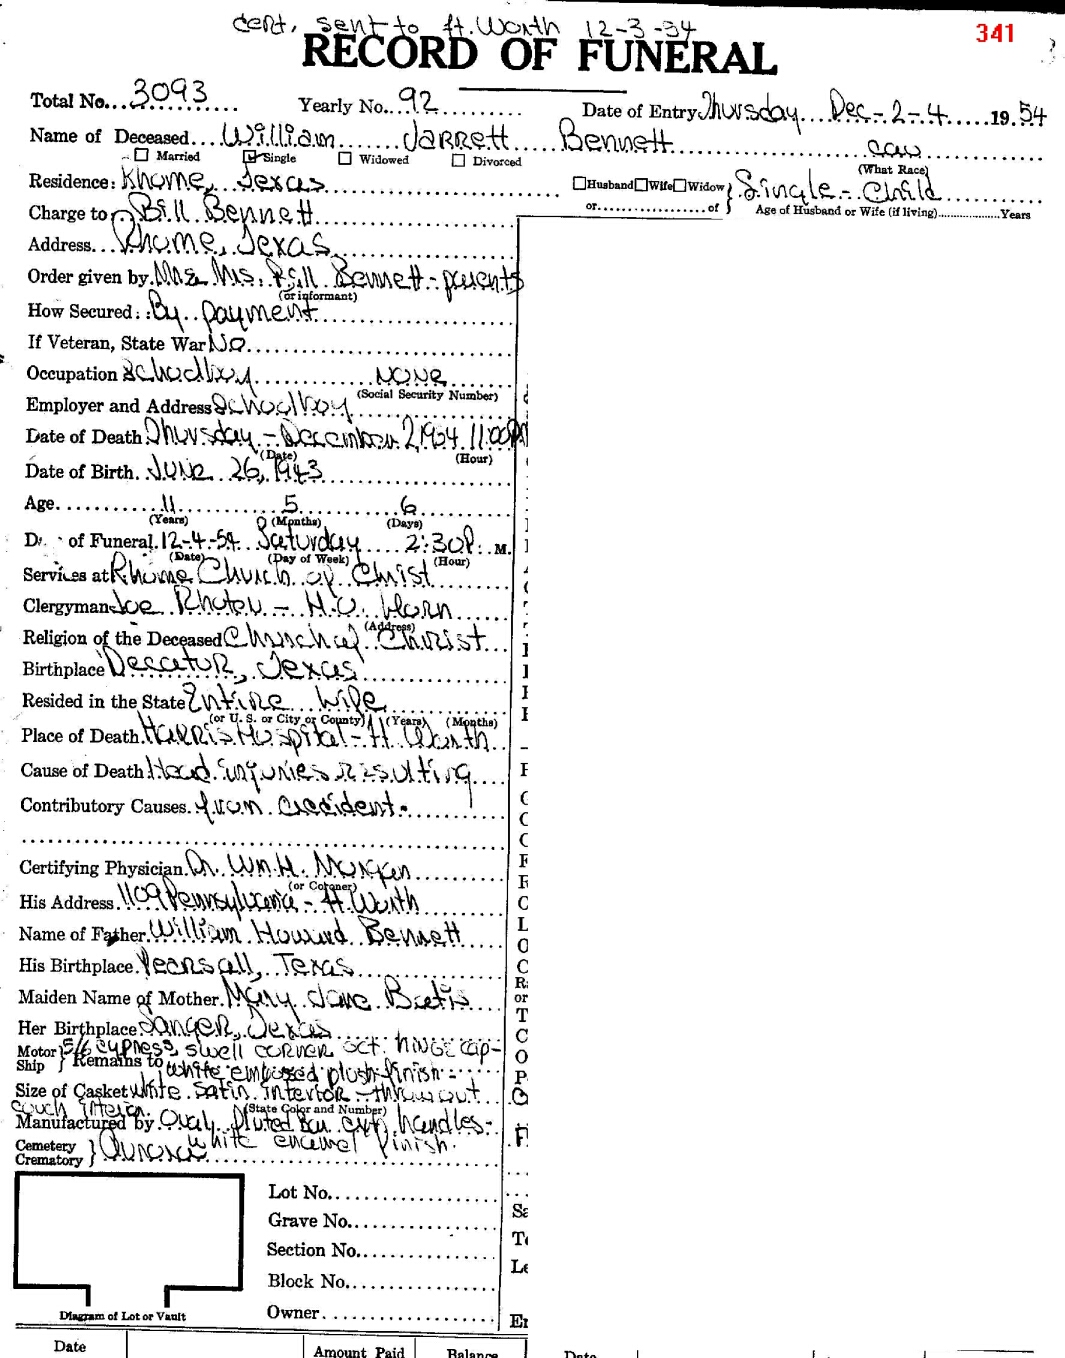 cert. sent to ft. Worth 12-3-54
341
RECORD OF FUNERAL
Total No. 3093 Yearly No. 92 Date of Entry Thursday Dec-2-4 1954
Name of Deceased William Jarrett Bennett cau
Married Single Widowed Divorced (What Race)
Residence: Rhome, Texas Husband Wife Widow } Single-Child
or of Age of Husband or Wife (if living) Years
Charge to Bill Bennett
Address Rhome, Texas
Order given by Mr & Mrs. Bill Bennett - parents
(or informant)
How Secured: By payment
If Veteran, State War No
Occupation Schoolboy NONE
(Social Security Number)
Employer and Address Schoolboy
Date of Death Thursday - December 2, 1954 11:00 PM
(Date) (Hour)
Date of Birth. June 26, 1943
Age 11 5 6
(Years) (Months) (Days)
D of Funeral. 12-4-54 Saturday 2:30 P. M.
(Date) (Day of Week) (Hour)
Services at Rhome Church of Christ
Clergyman Joe - H.O. Horn
(Address)
Religion of the Deceased Church of Christ
Birthplace Decatur, Texas
Resided in the State Entire Life
(or U. S. or City or County) (Years) (Months)
Place of Death Harris Hospital - ft. Worth
Cause of Death Head injuries resulting
Contributory Causes. from accident.
Certifying Physician. Dr. Wm. H. Morgan
(or Coroner)
His Address. 1109 Pennsylvania - ft. Worth
Name of Father William Howard Bennett
His Birthplace. Pearsall, Texas
Maiden Name of Mother. Mary Jane
Her Birthplace Sanger, Texas
Motor Ship } 5/6 cypress, swell corner oct. hinge cap-
Remains to white embossed plush finish -
Size of Casket white satin interior - throw out
couch interior. (State Color and Number)
Manufactured by Oval fluted bar ext. handles-
white enamel finish.
Cemetery
Crematory } Aurora
Lot No.
Grave No.
Section No.
Block No.
Owner
Diagram of Lot or Vault
Date Amount Paid Balance Date